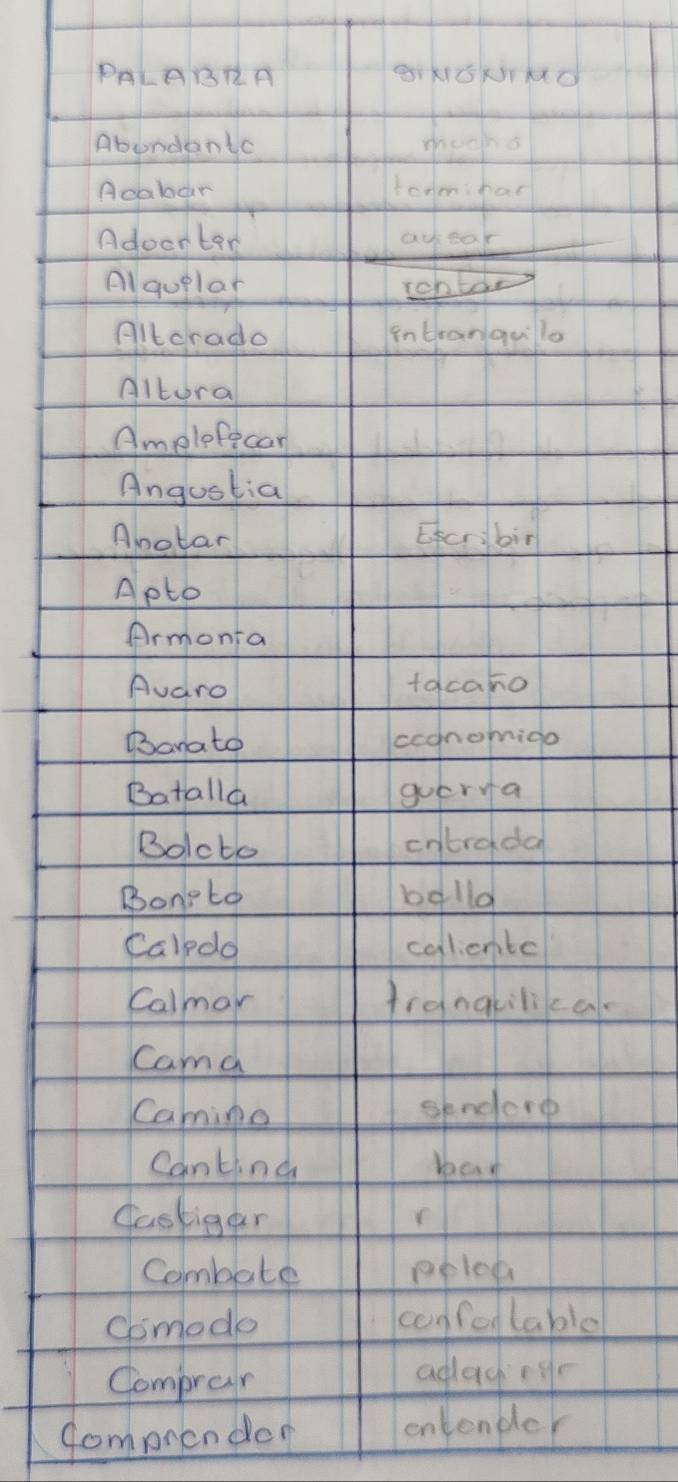 PALABRA SINÓNIMO
Abundante mucho
Acabar terminar
Adverter avisar
Alquelar rentar
Alterado intranquilo
Altura
Amplefecar
Angustia
Anotar Escribir
Apto
Armonia
Avaro tacaño
Barato economico
Batalla guerra
Boleto entrada
Boneto bello
Caledo caliente
Calmar tranquilizar
Cama
Camino sendero
Cantina bar
Castigar r
Combate pelea
Comodo confortable
Comprar adquerer
Comprender entender